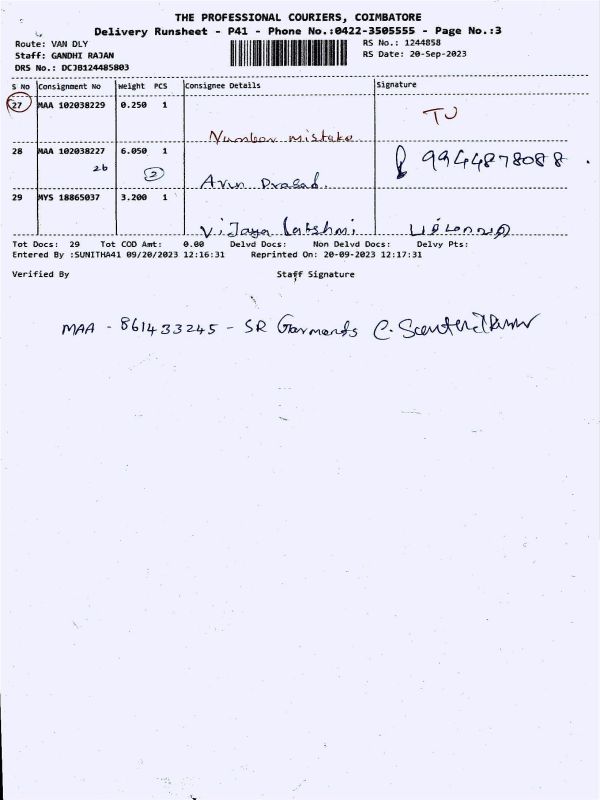 THE PROFESSIONAL COURIERS, COIMBATORE
Delivery Runsheet - P41 - Phone No.:0422-3505555 - Page No.:3
Route: VAN DLY
RS No.: 1244858
Staff: GANDHI RAJAN
RS Date: 20-Sep-2023
DRS No.: DCJB124485803
S No Consignment No Weight PCS Consignee Details Signature
27 MAA 102038229 0.250 1 TJ
Number mistake
28 MAA 102038227 6.050 1 9944878088
26 2
Arun Prasad.
29 MYS 18865037 3.200 1
Vijaya Lakshmi
Tot Docs: 29 Tot COD Amt: 0.00 Delvd Docs: Non Delvd Docs: Delvy Pts:
Entered By :SUNITHA41 09/20/2023 12:16:31 Reprinted On: 20-09-2023 12:17:31
Verified By Staff Signature
MAA - 861433245 - SR Garments